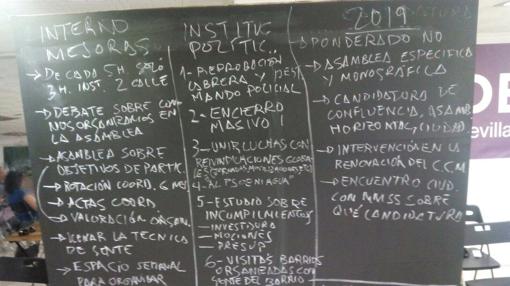 INTERNO
MEJORAS
→ DE CADA 5H. SOLO
3H. INST. 2 CALLE
→ DEBATE SOBRE COMO
NOS ORGANIZAMOS EN
LA ASAMBLEA
→ ASAMBLEA SOBRE
OBJETIVOS DE PARTIC.
→ ROTACIÓN COORD. 6 MES
→ ACTAS COORD.
→ VALORACIÓN
→ LLENAR LA TECNICA
DE GENTE
→ ESPACIO SEMANAL
PARA ORGANIZAR
INSTITUC
POLÍTIC..
1- REPROBACIÓN
CABRERA Y DEST.
MANDO POLICIAL
2- ENCIERRO
MASIVO 1
3- UNIR LUCHAS CON
REIVINDICACIONES GLOBA-
LES
4-
5- ESTUDIO SOBRE
INCUMPLIMIENTOS
— INVESTIDURA
— MOCIONES
— PRESUP.
6- VISITAS BARRIOS
ORGANIZADAS CON
GENTE DEL BARRIO
2019
→ PONDERADO NO
→ ASAMBLEA ESPECÍFICA
Y MONOGRÁFICA
→ CANDIDATURA DE
CONFLUENCIA, ASAMB.
HORIZONTAL, CIUDAD.
→ INTERVENCIÓN EN LA
RENOVACIÓN DEL C.C.M.
→ ENCUENTRO CIUD.
CON MMSS SOBRE
QUÉ CANDIDATURA
DE
evilla